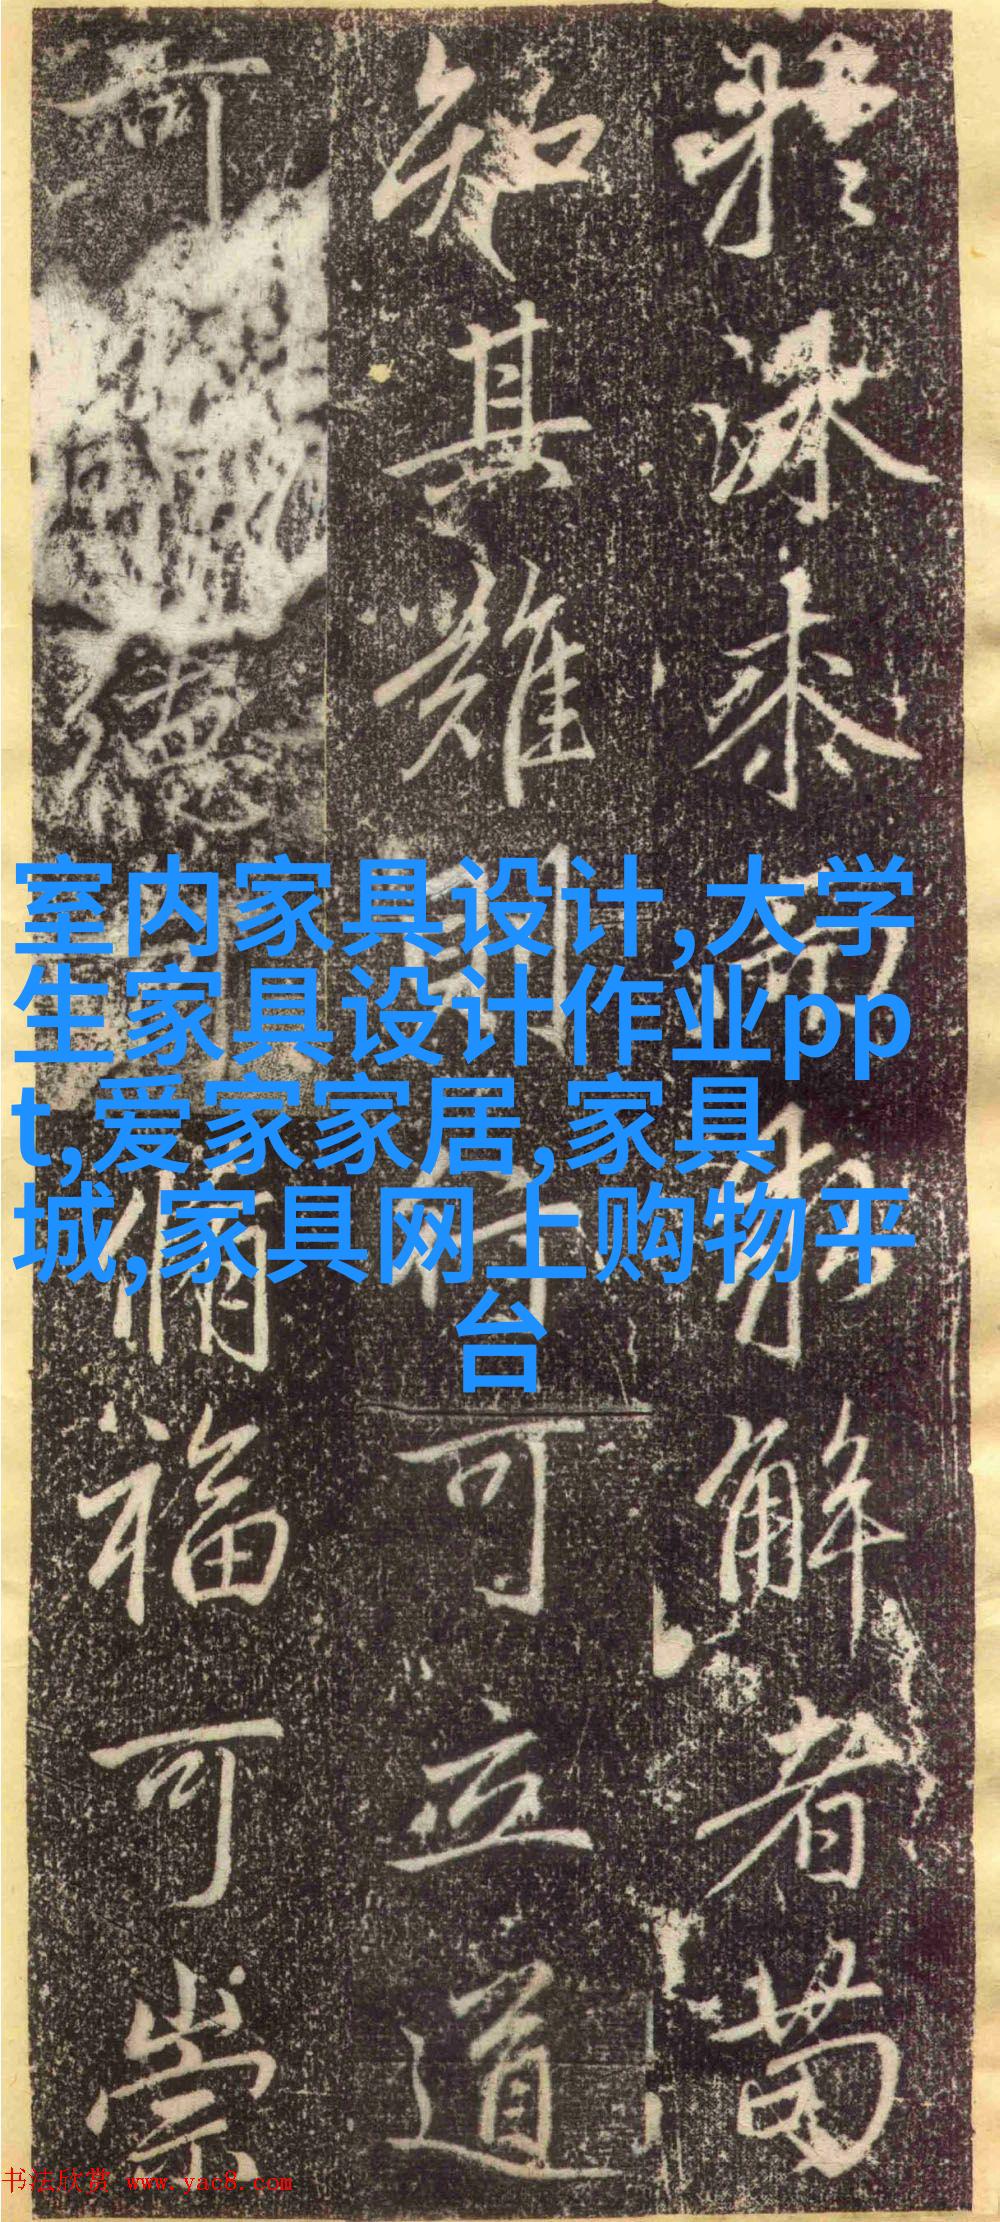 於深而解者苗
知其難則行可立道
可德脩福可崇
室内家具设计,大学
生家具设计作业pp
t,爱家家居,家具
城,家具网上购物平
台
书法欣赏 www.yac8.com